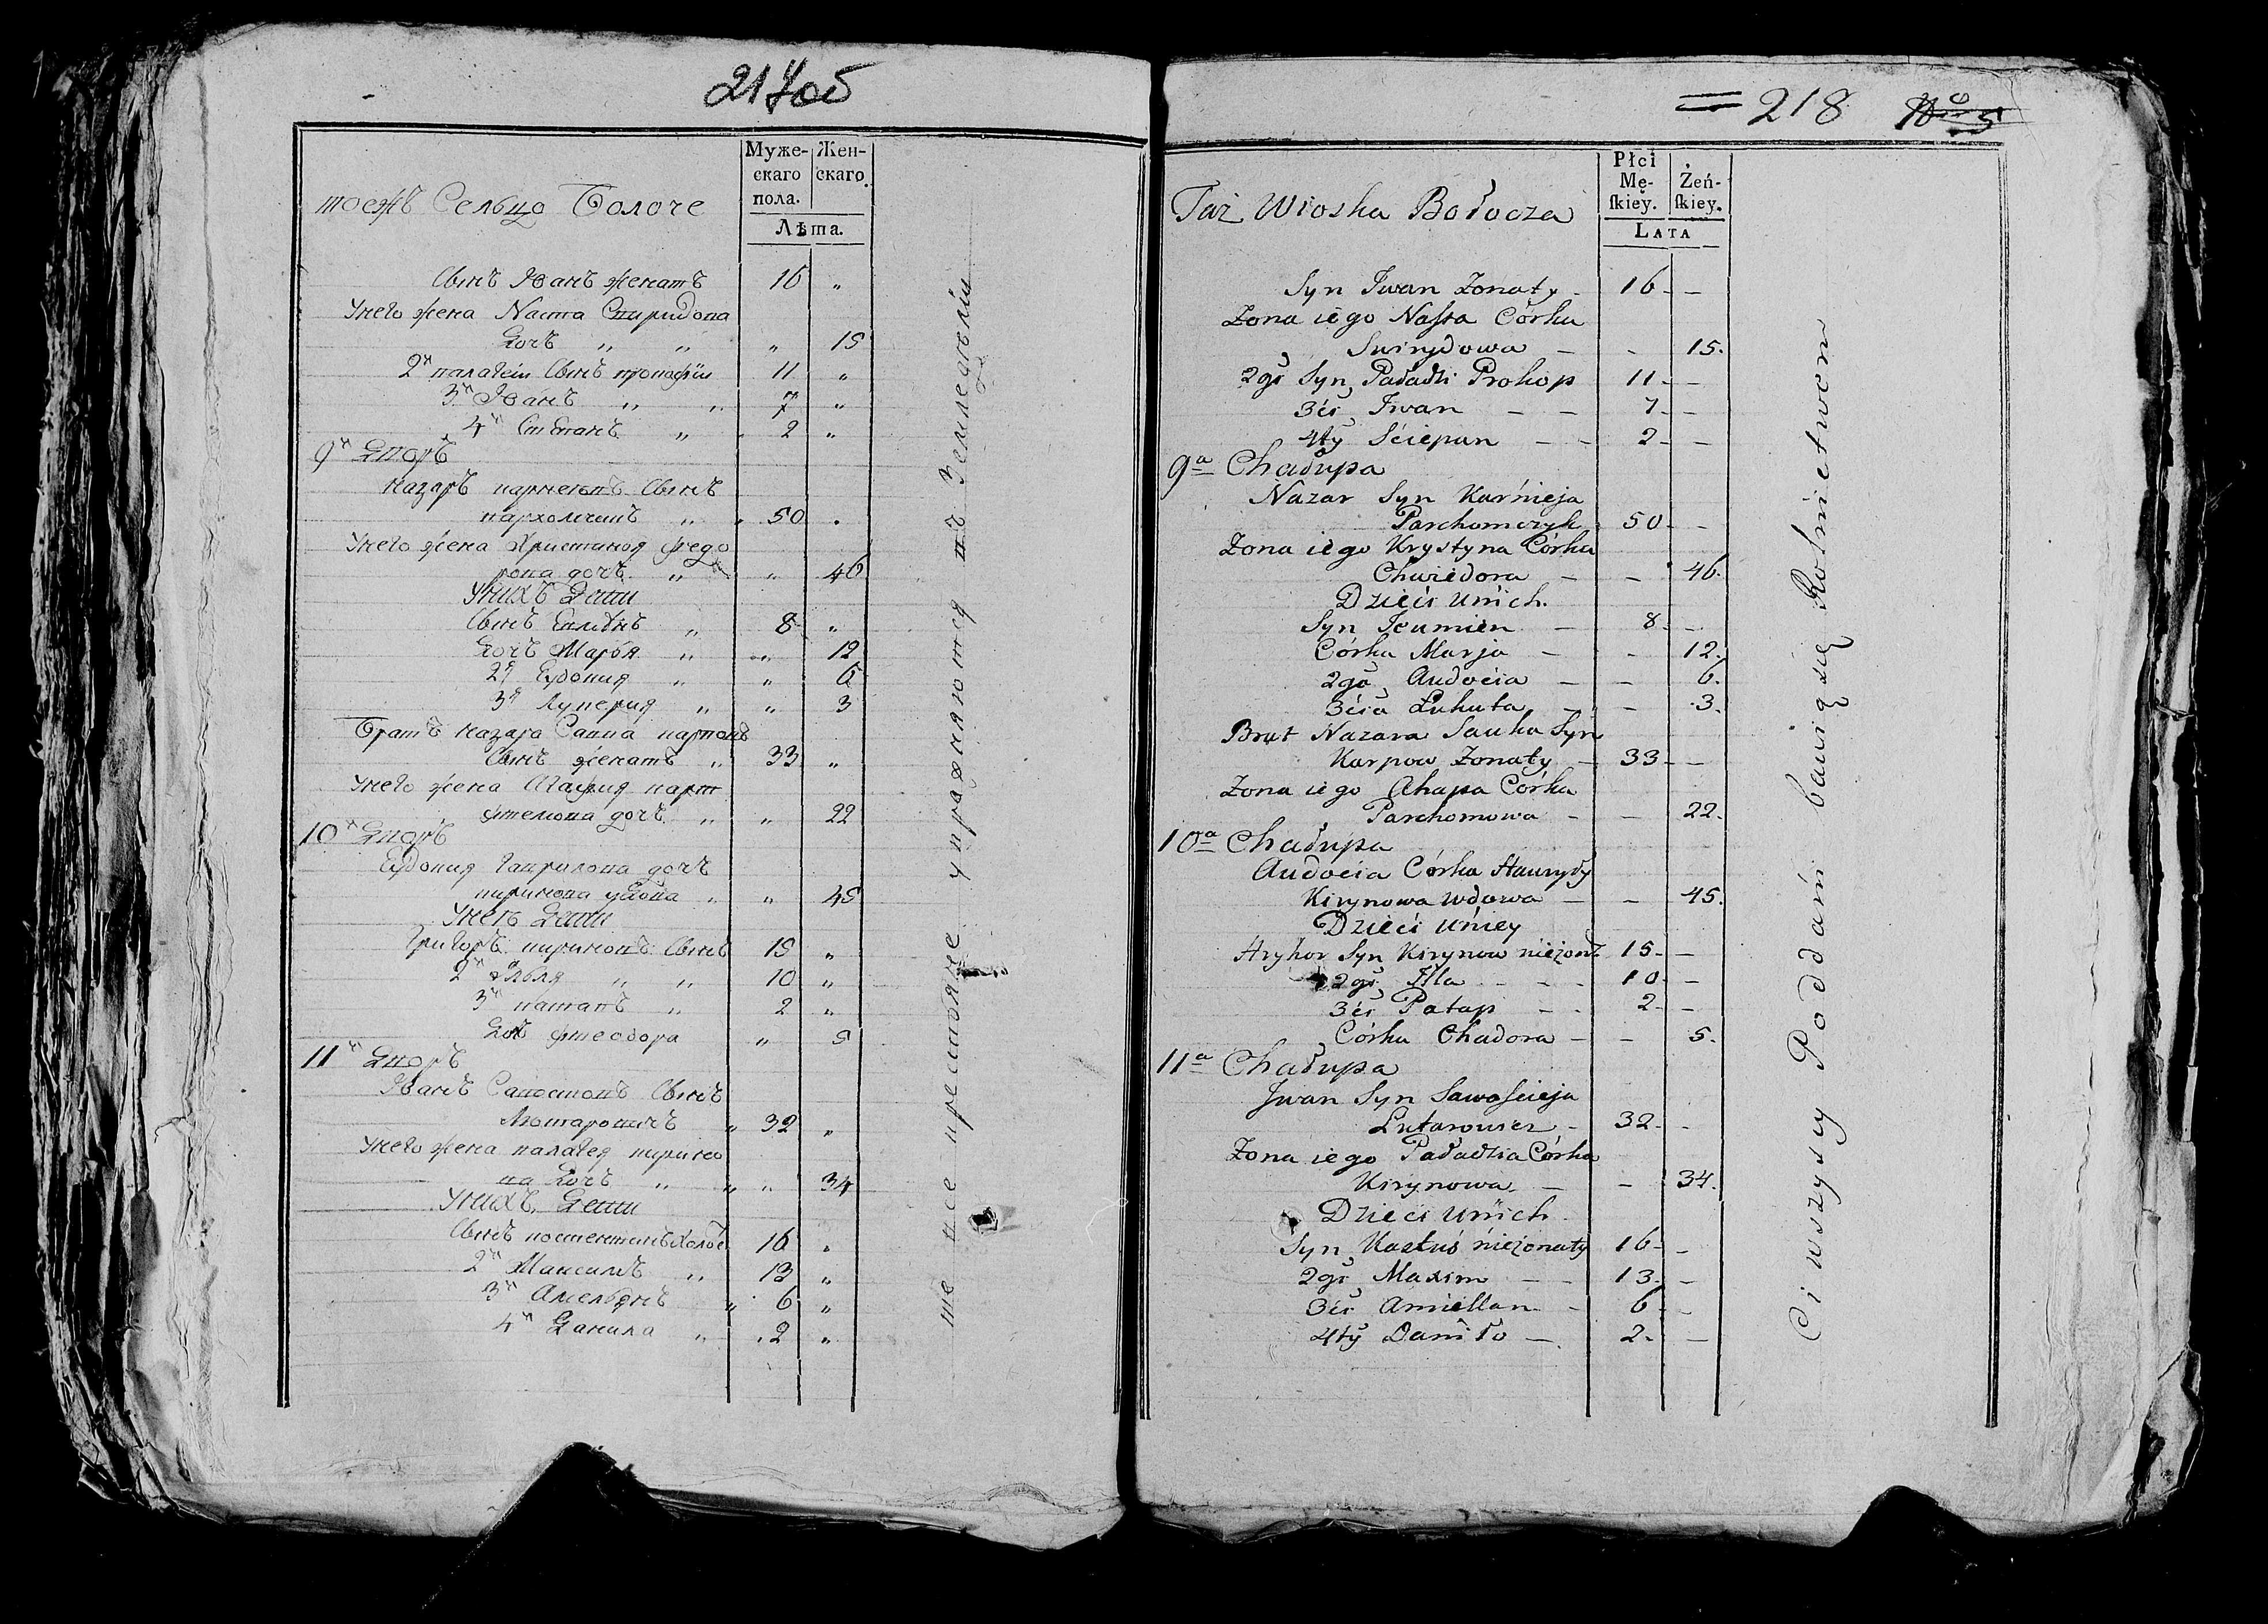 217об
Муже- Жен-
скаго скаго.
пола.
Лѣта.
тоежъ Сельцо Болоче
Сынъ Иванъ женатъ 16 „
Унего жена Наста Спиридона
Дочь „ „ „ 15
2й палагеіи Сынъ прокофій 11 „
3й Иванъ „ „ 7 „
4й Степанъ „ „ 2 „
9й Дворъ
Назаръ Сынъ
пархомчикъ „ „ 50 „
Унего жена Христиноя федо
рова дочь „ „ 46
Унихъ Дети
Сынъ „ 8 „
Дочь Марья „ „ 12
2я Еудокия „ „ 6
3я Лукерия „ „ 3
Братъ Назара Савка карповъ
Сынъ женатъ „ 33 „
Унего жена Агафия парт
фтемова дочь „ „ 22
10й Дворъ
Еудокия Гаврилова дочь
киринова удова „ „ 45
Унеѣ Дети
Григоръ кириновъ Сынъ 15 „
2й Илья „ „ 10 „
3й патапъ „ 2 „
Доч фтеодора „ 5
11й Дворъ
Иванъ Савостовъ Сынъ
Лютаровичъ „ 32 „
Унего жена палагея кирино
ва Дочь „ „ „ 34
Унихъ Дети
Сынъ костентинъ Холос 16 „
2й Максимъ „ 13 „
3й Амельянъ „ 6 „
4й Данила „ „ 2 „
те все крестьяне упражняются въ Земледеліи
= 218 No 5
Płci
Mę- Żeń-
skiey. skiey.
LATA
Taż Wioska Bołocza
Syn Jwan Żonaty - 16 - -
Żona iego Nasta Córka
Swirydowa - - 15.
2gi Syn Paładzi Prokop 11 - -
3ći Jwan - - 7 - -
4ty Sciepan - - 2 - -
9a Chałupa
Nazar Syn Karńieja
Parchomczyk 50 - -
Żona iego Krystyna Córka
Chwiedora - - 46.
Dzieći Uńich.
Syn Jeumien - 8 - -
Córka Marja - - 12.
2ga Audocia - - 6.
3ćia Łukuta - - 3.
Brat Nazara Sauka Syn
Karpow Żonaty - 33 - -
Żona iego Ahapa Córka
Parchomowa - - 22.
10a Chałupa
Audocia Córka Hauryły
Kirynowa wdowa - - 45.
Dzieći Uńiey
Hryhor Syn Kirynow nieżont 15 - -
2gi Jlla - - - 10 - -
3ći Patap - - 2 - -
Córka Chadora - - 5.
11a Chałupa
Jwan Syn Sawościeja
Lutarowicz - 32 - -
Żona iego Paładzia Córka
Kirynowa - - 34.
Dzieci Uńich
Syn Kastuś ńieżonaty 16 - -
2gi Maxim - - 13 - -
3ći Amiellan - 6 - -
4ty Daniło - 2 - -
Ci wszyscy Poddani bawią się Rolnictwem